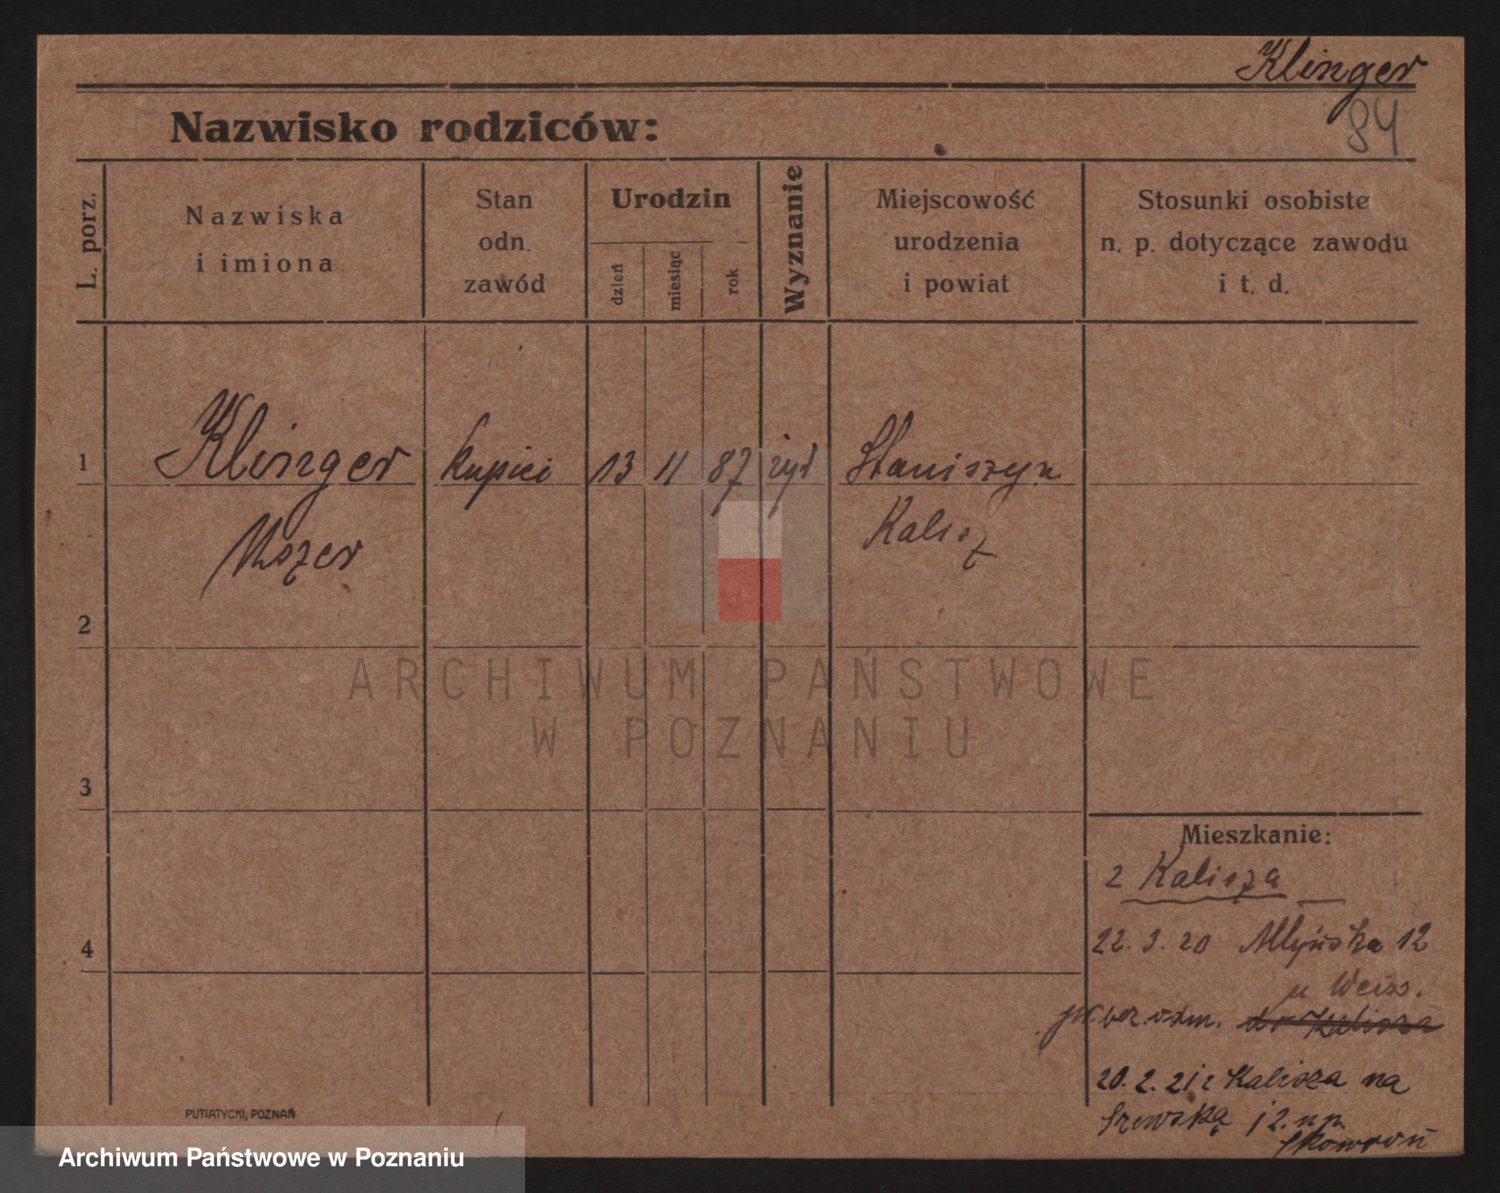 Klinger
84
Nazwisko rodziców:
L. porz.
Nazwiska
i imiona
Stan
odn.
zawód
Urodzin
dzień
miesiąc
rok
Wyznanie
Miejscowość
urodzenia
i powiat
Stosunki osobiste
n. p. dotyczące zawodu
i t. d.
1
Klinger kupiec 13 11 87 żyd Staniszyn
Kalisz
2
ARCHIWUM PAŃSTWOWE
W POZNANIU
3
Mieszkanie:
z Kalisza
22. 3. 20 Młyńska 12
u Weiss.
bez. odm. do Kalisza
4
20. 2. 21 z Kalisza na
Szewską 12. u p.
Skowroń
PUTIATYCKI, POZNAŃ
Archiwum Państwowe w Poznaniu